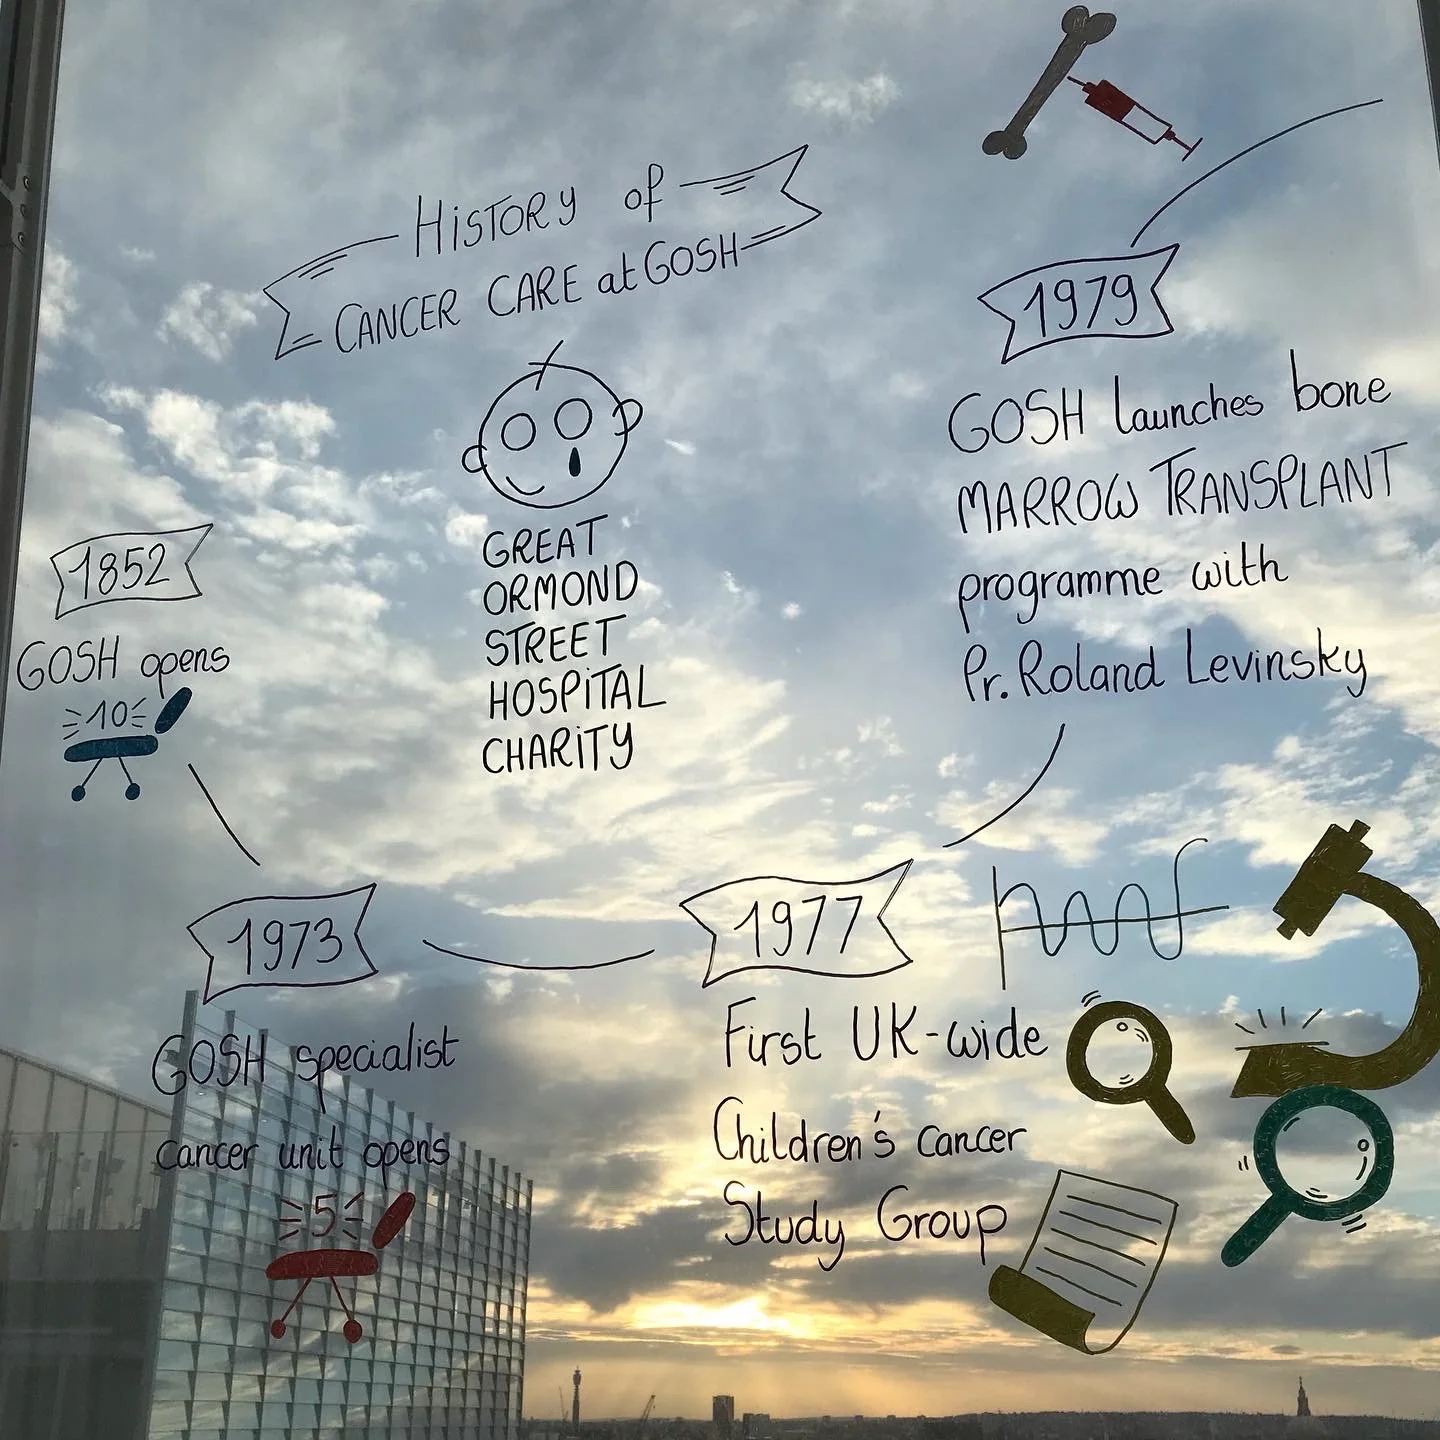 HiSTORY of
CANCER CARE at GOSH
GREAT
ORMOND
STREET
HOSPiTAL
CHARiTY
1852
GOSH opens
10
1973
GOSH specialist
cancer unit opens
5
1977
First UK-wide
Children's cancer
Study Group
1979
GOSH launches bone
MARROW TRANSPLANT
programme with
Pr. Roland Levinsky